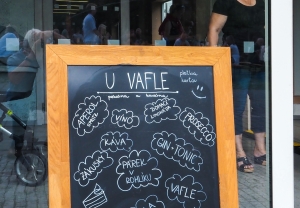 U VAFLE
platba
kartou
APEROL
SPRITZ
VÍNO
DOMÁCÍ
LIMONÁDA
PROSECCO
KÁVA
GIN+TONIC
ZÁKUSKY
PÁREK
V
ROHLÍKU
VAFLE